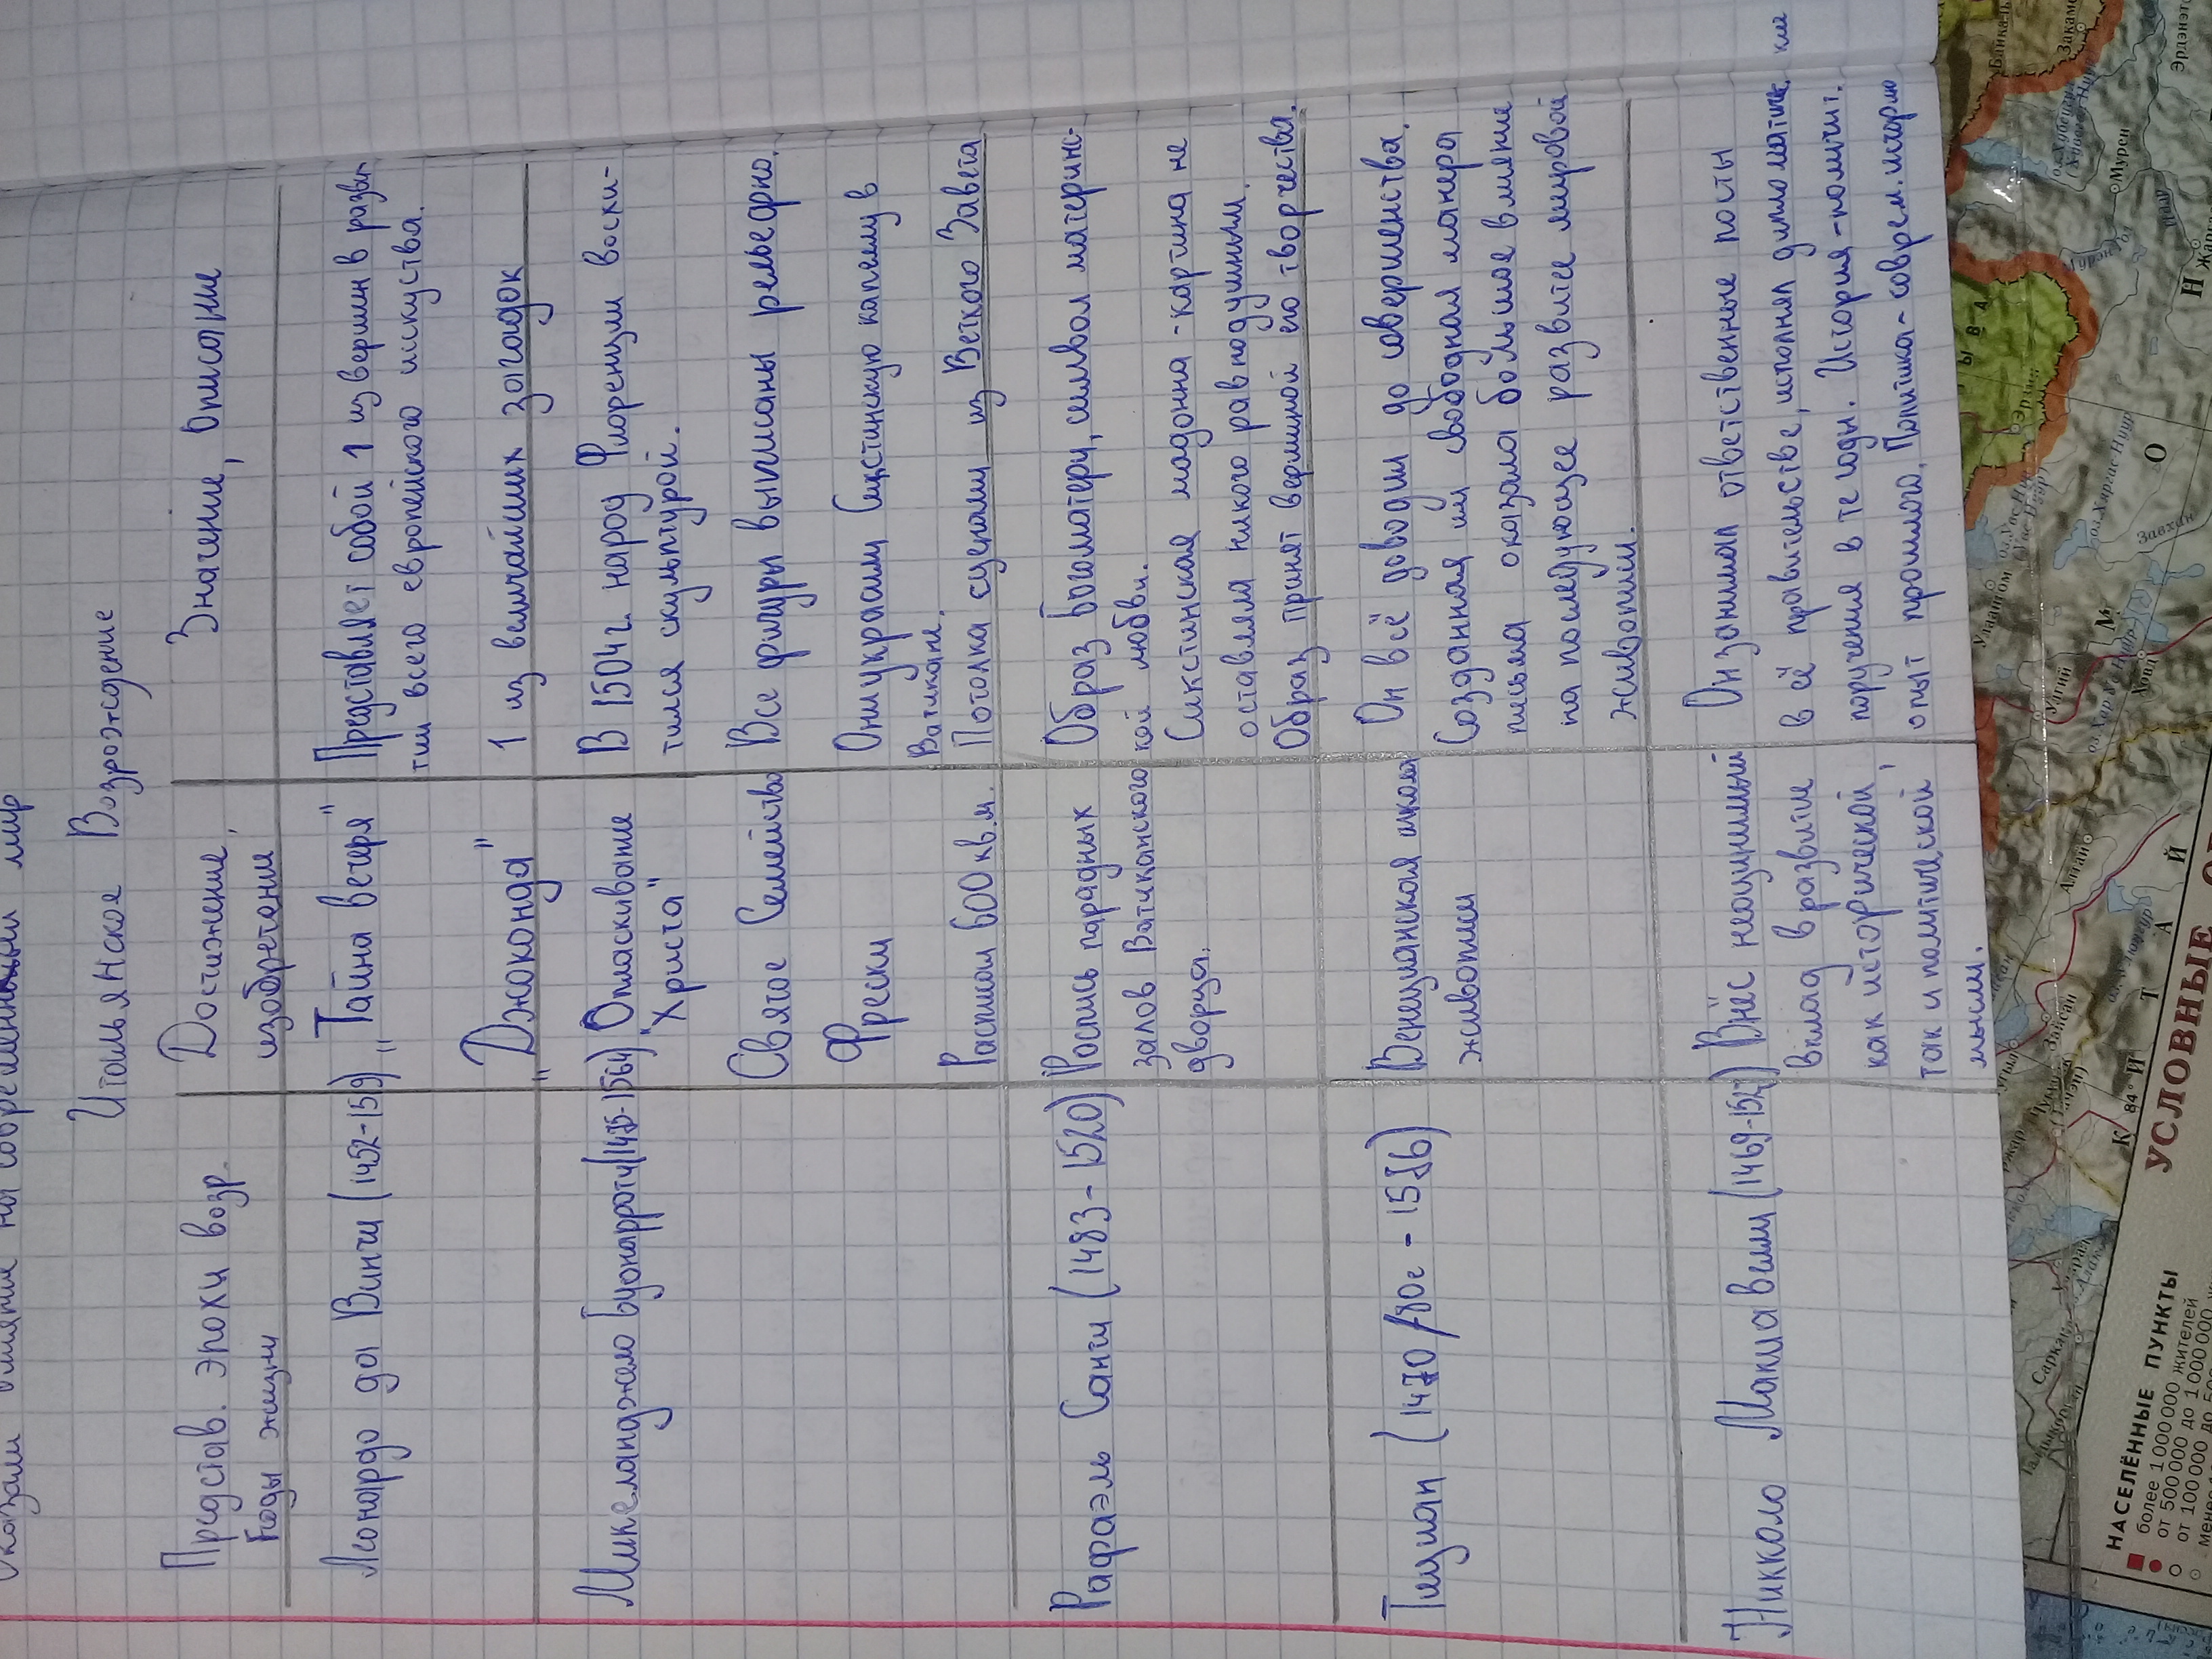 оказали влияние на современный мир
Итальянское Возрождение
Представ. эпохи возр.
Годы жизни
Достижение,
изобретении
Значение, Описание
Леонардо да Винчи (1452-159)
"Тайна вечеря"
Представляет собой 1 из вершин в разви-
тии всего европейского искусства.
"Джоконда"
1 из величайших загадок
Микеланджело Буонарроти (1475-1564)
Опласкивание
"Христа"
В 1504г. народ Флоренции восхи-
тился скульптурой.
Святое Семейство
Все фигуры выписаны рельефно.
Фрески
Они украсили Сикстинскую капеллу в
Ватикане.
Расписал 600 кв.м.
Потолка сценами из Ветхого Завета
Рафаэль Санти (1483-1520)
Роспись парадных
залов Ватиканского
дворца.
Образ Богоматери, символ материнс-
кой любви.
Сикстинская мадонна - картина не
оставляла никого равнодушным.
Образ принят вершиной его творчества.
Тициан (1470/80е - 1576)
Венецианская школа
живописи
Он всё доводил до совершенства.
Созданная им свободная манера
письма оказала большое влияние
на последующее развитие мировой
живописи.
Никколо Макиавелли (1469-1527)
Внёс неоценимый
вклад в развитие
как исторической,
так и политической
мысли.
Он занимал ответственные посты
в её правительстве, исполнял дипломатичес
кие
поручения в те годы. История - полит.
опыт прошлого, Политика - соврем. историю
УСЛОВНЫЕ
НАСЕЛЁННЫЕ ПУНКТЫ
более 1 000 000 жителей
от 500 000 до 1 000 000
от 100 000 до
КИТАЙ
84°
Мурен
оз. Хубсугул
Улаангом
оз. Хяргас-Нуур
Завхан
Улэгий
Ховд
Алтай
Зайсан
Сарканд